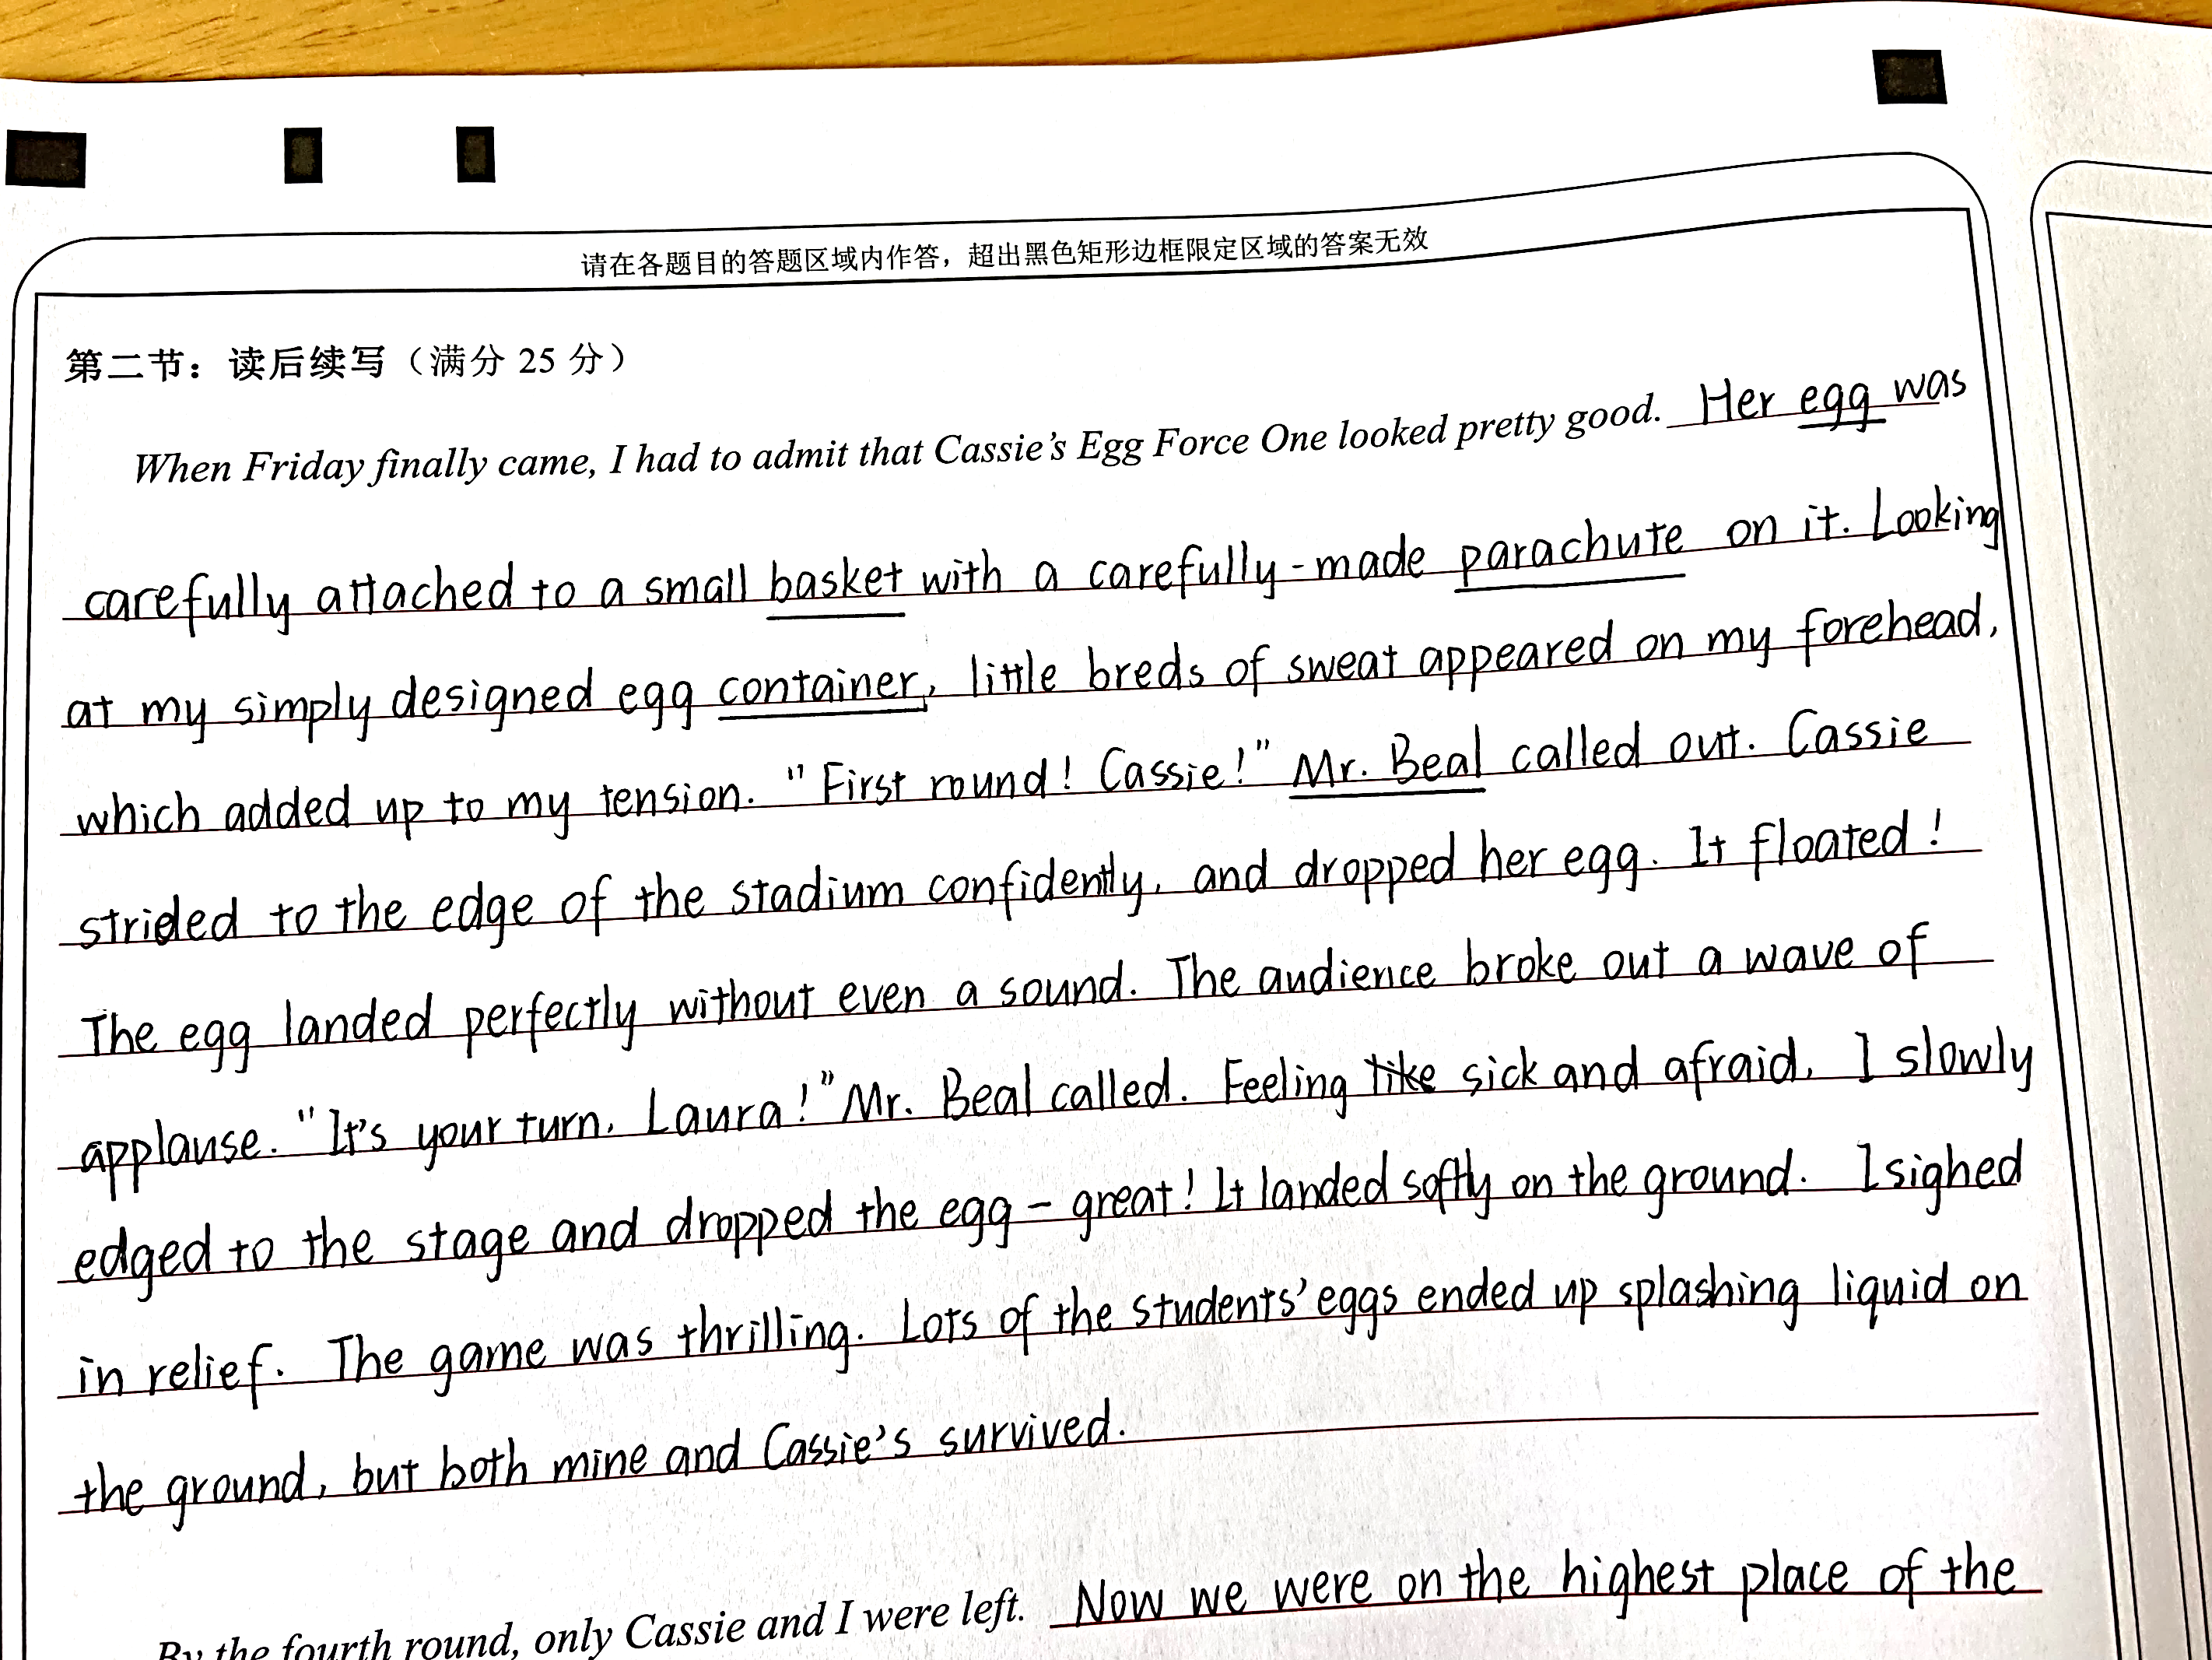 请在各题目的答题区域内作答，超出黑色矩形边框限定区域的答案无效
第二节：读后续写（满分 25 分）
When Friday finally came, I had to admit that Cassie's Egg Force One looked pretty good. Her egg was
carefully attached to a small basket with a carefully-made parachute on it. Looking
at my simply designed egg container, little breds of sweat appeared on my forehead,
which added up to my tension. "First round! Cassie!" Mr. Beal called out. Cassie
strided to the edge of the stadium confidently, and dropped her egg. It floated!
The egg landed perfectly without even a sound. The audience broke out a wave of
applause. "It's your turn, Laura!" Mr. Beal called. Feeling like sick and afraid, I slowly
edged to the stage and dropped the egg – great! It landed softly on the ground. I sighed
in relief. The game was thrilling. Lots of the students' eggs ended up splashing liquid on
the ground, but both mine and Cassie's survived.
By the fourth round, only Cassie and I were left. Now we were on the highest place of the